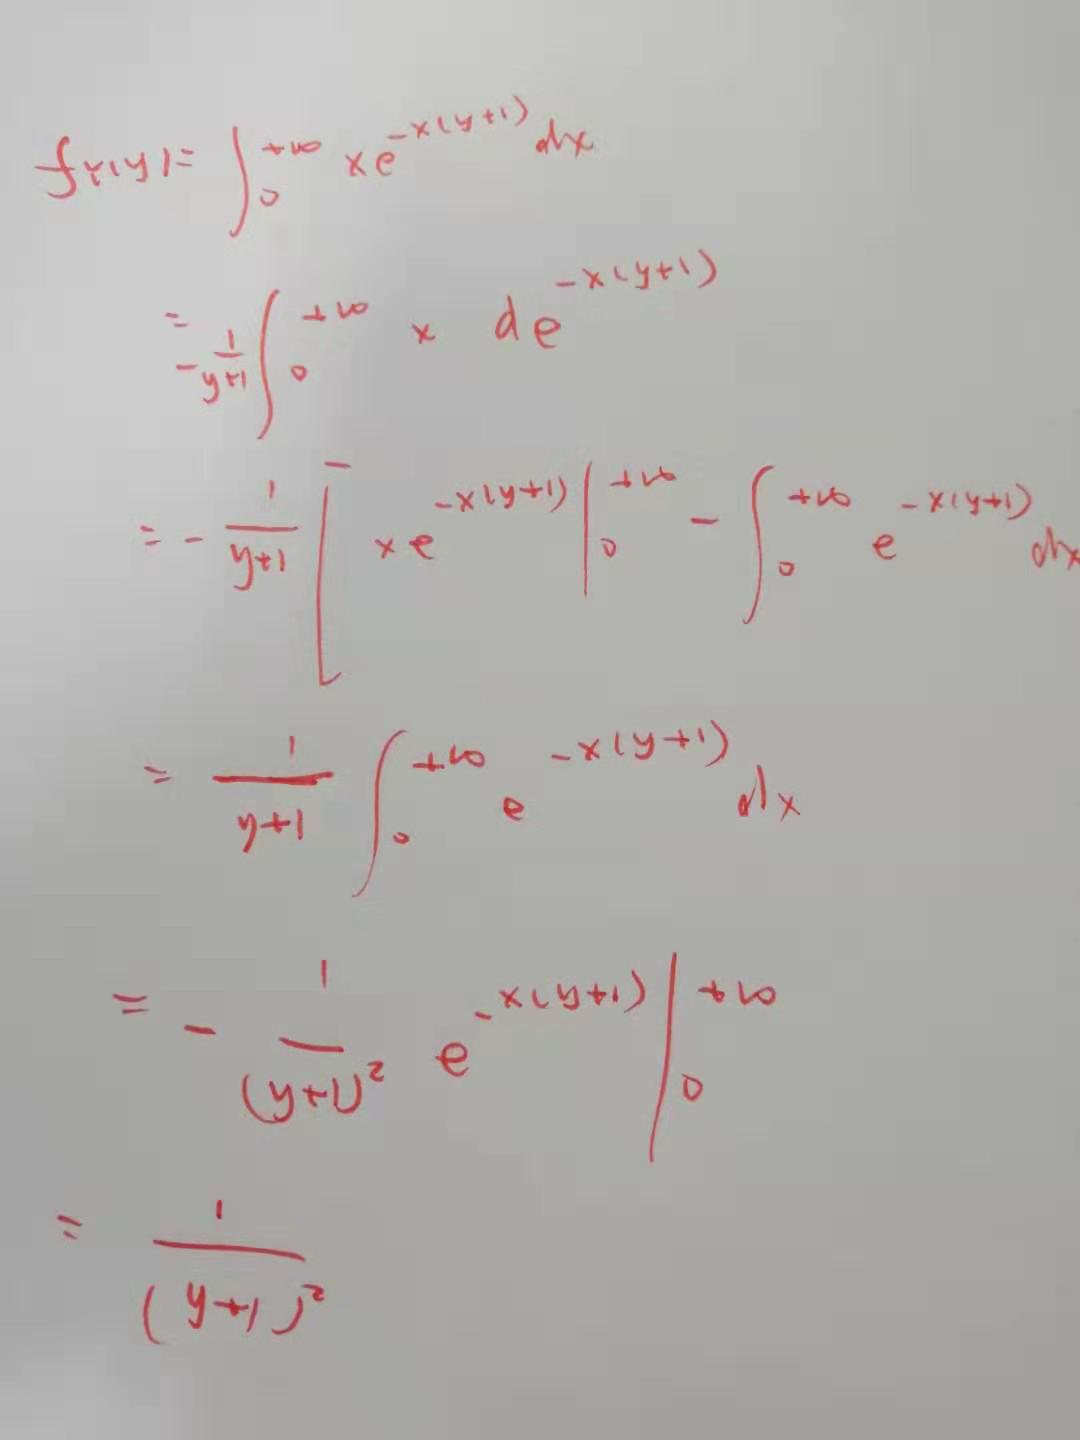 f_Y(y) = ∫_0^{+∞} xe^{-x(y+1)} dx
= -\frac{1}{y+1} ∫_0^{+∞} x de^{-x(y+1)}
= -\frac{1}{y+1} [ xe^{-x(y+1)} |_0^{+∞} - ∫_0^{+∞} e^{-x(y+1)} dx
= \frac{1}{y+1} ∫_0^{+∞} e^{-x(y+1)} dx
= -\frac{1}{(y+1)^2} e^{-x(y+1)} |_0^{+∞}
= \frac{1}{(y+1)^2}